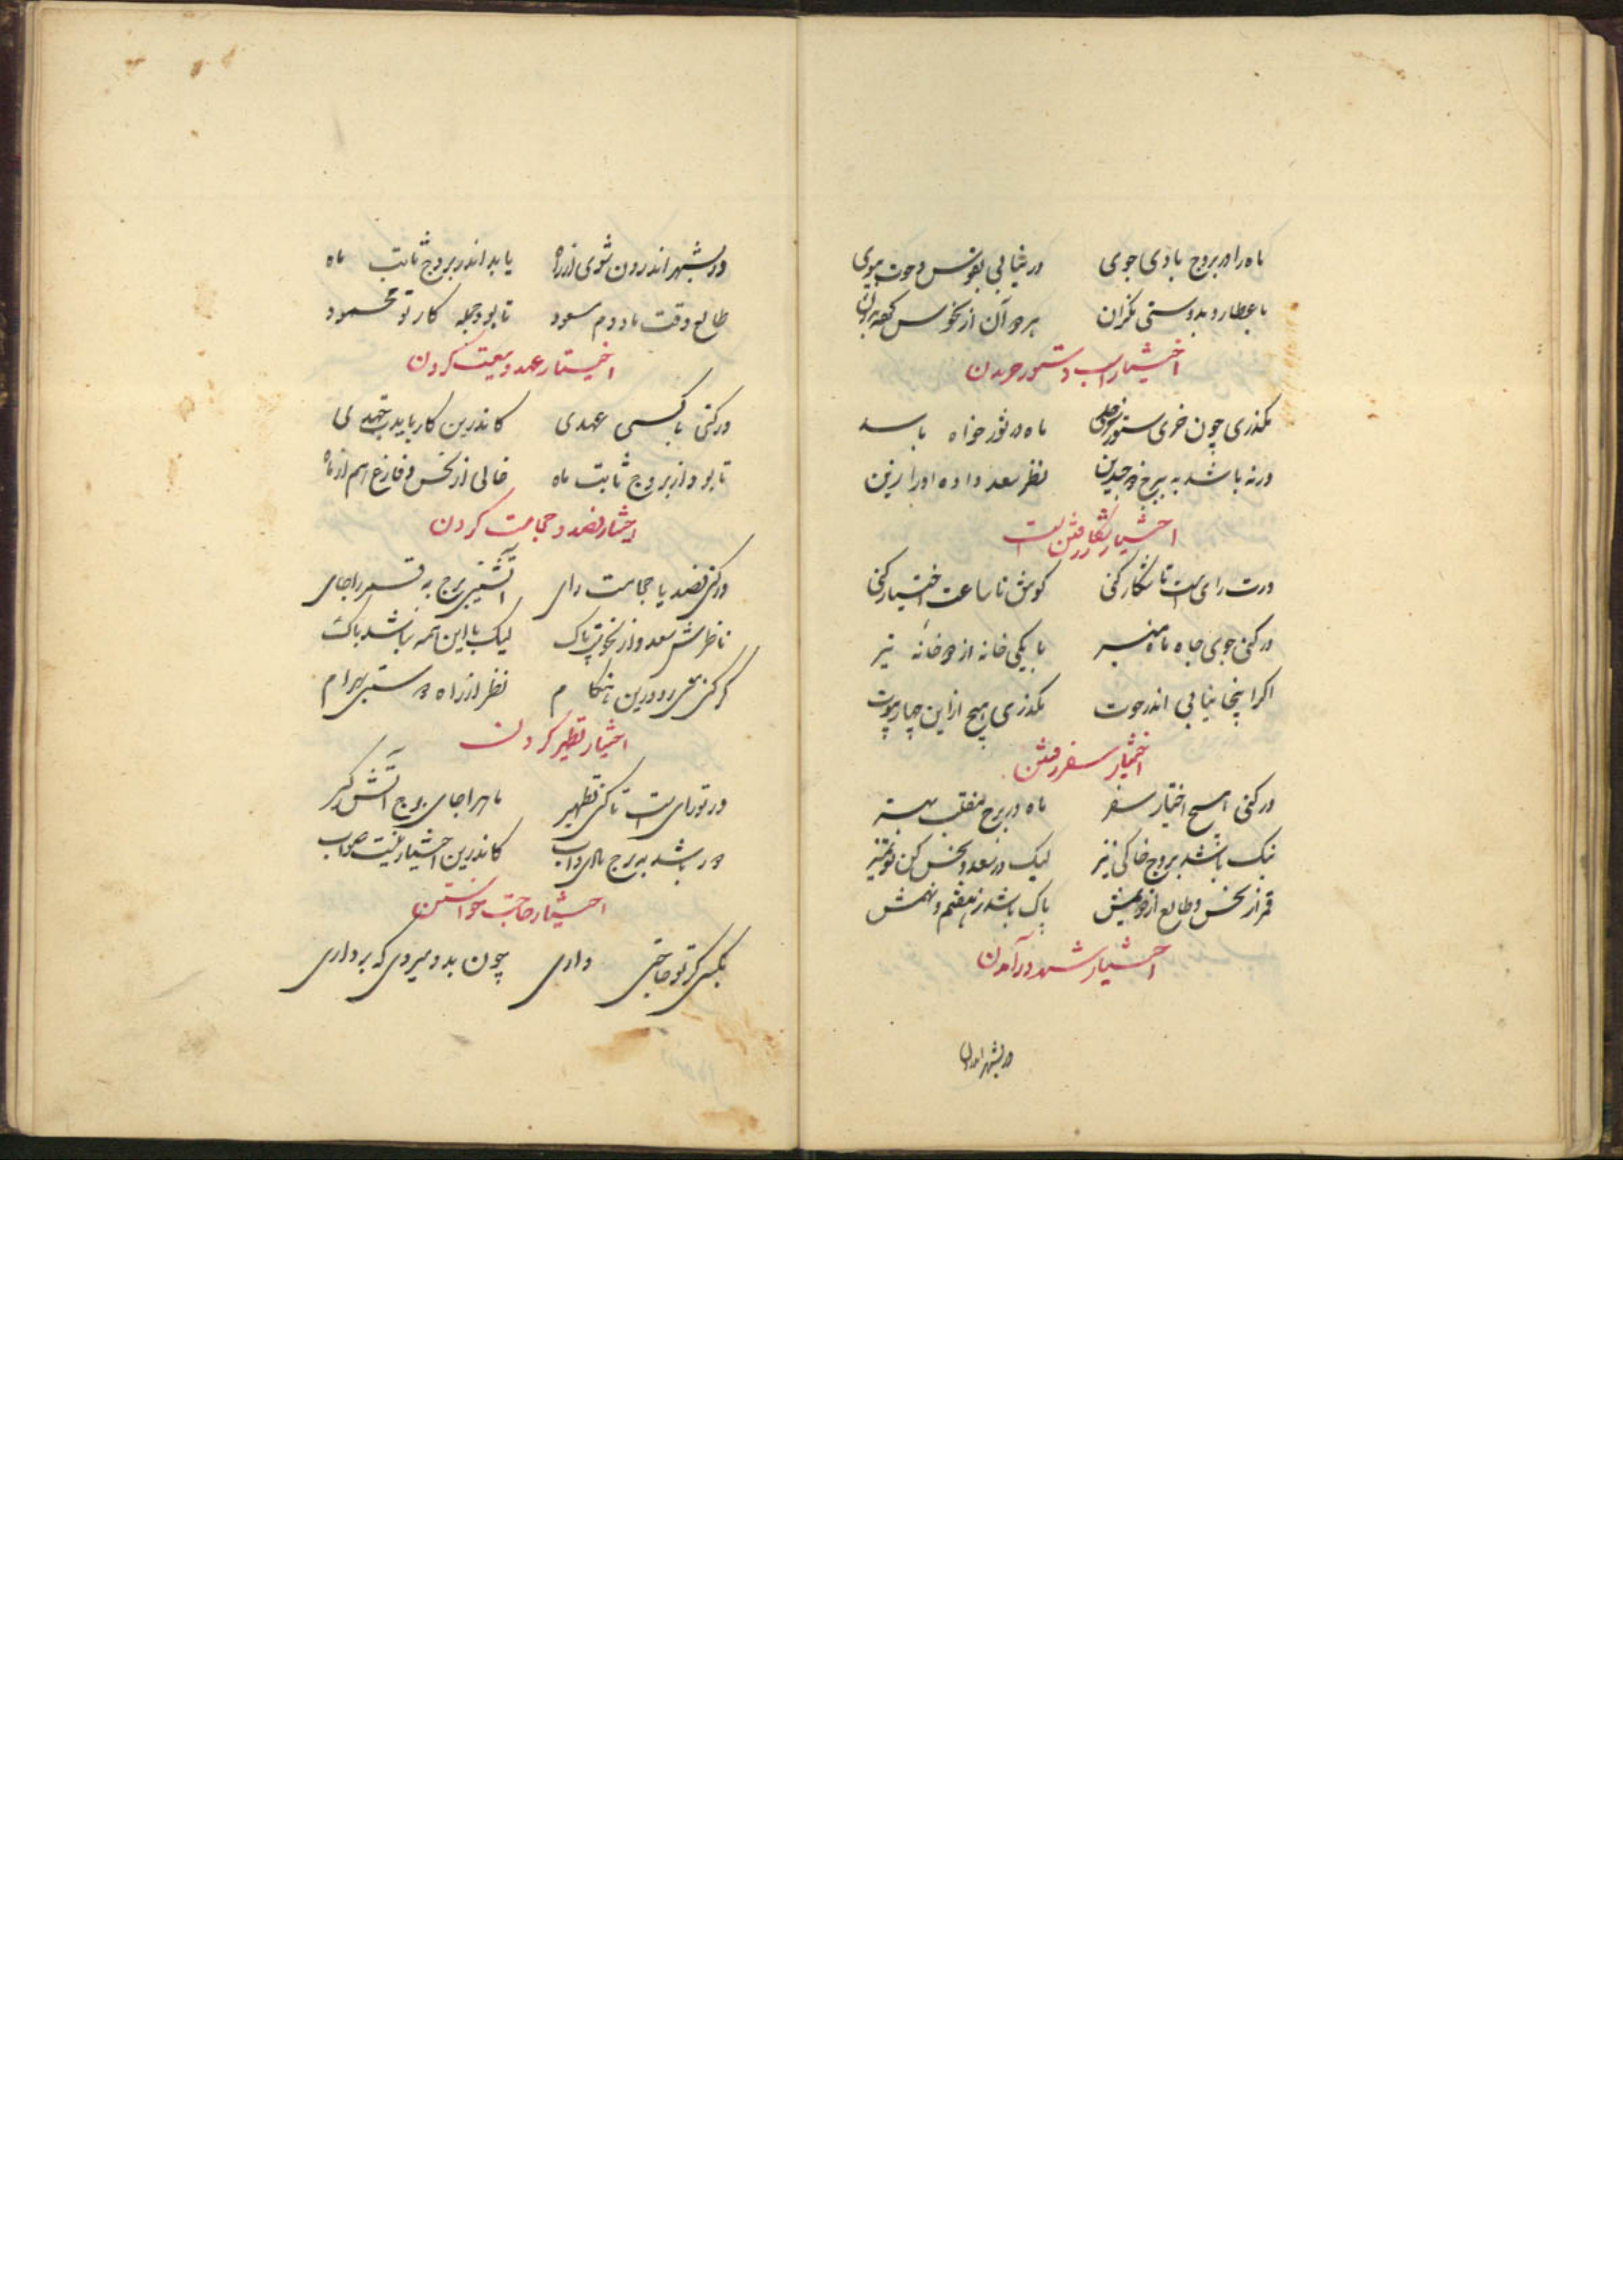 ماه را در بروج بادی جوی در نیابی بقوس و حوت بپوی
با عطارد بدوستی نگران هر دو آن از نحوس
اختیار اسب و ستور خریدن
بگذری چون خری ستور ماه در ثور خواه باسد
ورنه باشد به برج دو جدین نظر سعد داده او را زین
اختیار بشکار رفتن است
ورت رای است تا شکار کنی کوش تا ساعت اختیار کنی
ور کنی جوی جاه ماه منیر با یکی خانه از دو خانه تیر
اگر اینجا نیابی اندر حوت بگذری هیچ ازین چهار بیوت
اختیار سفر رفتن
ور کنی هیچ اختیار سفر ماه در برج منقلب بهتر
نیک باشد بروج خاکی نیز لیک در سعد و نحس کن تو تمیز
قمر از نحس و طالع از پاک باشد ز هفتم و نهمش
اختیار شهر درآمدن
در بشهر اندرون
ور بشهر اندرون شوی از راه باید اندر بروج ثابت ماه
طالع وقت با دوم مسعود تا بود جمله کار تو محمود
اختیار عهد و بیعت کردن
ور کنی با کسی عهدی کاندرین کار باید جهدی
تا بود از بروج ثابت ماه خالی از نحس و فارغ
اختیار فصد و حجامت کردن
ور کنی فصد یا حجامت رای آتشین برج به قمر را جای
ناظرش سعد و از نحوست پاک لیک با این همه نباشد باک
گر کنی در درین هنگام نظر از راه دوستی بهرام
اختیار تطهیر کردن
ور تو رای است تا کنی تطهیر ماه را جای برج آتش گیر
ور باشد به برج کاندرین اختیار نیست صواب
اختیار حاجت خواستن
بکسی گر تو حاجتی داری چون بدو میروی که برداری